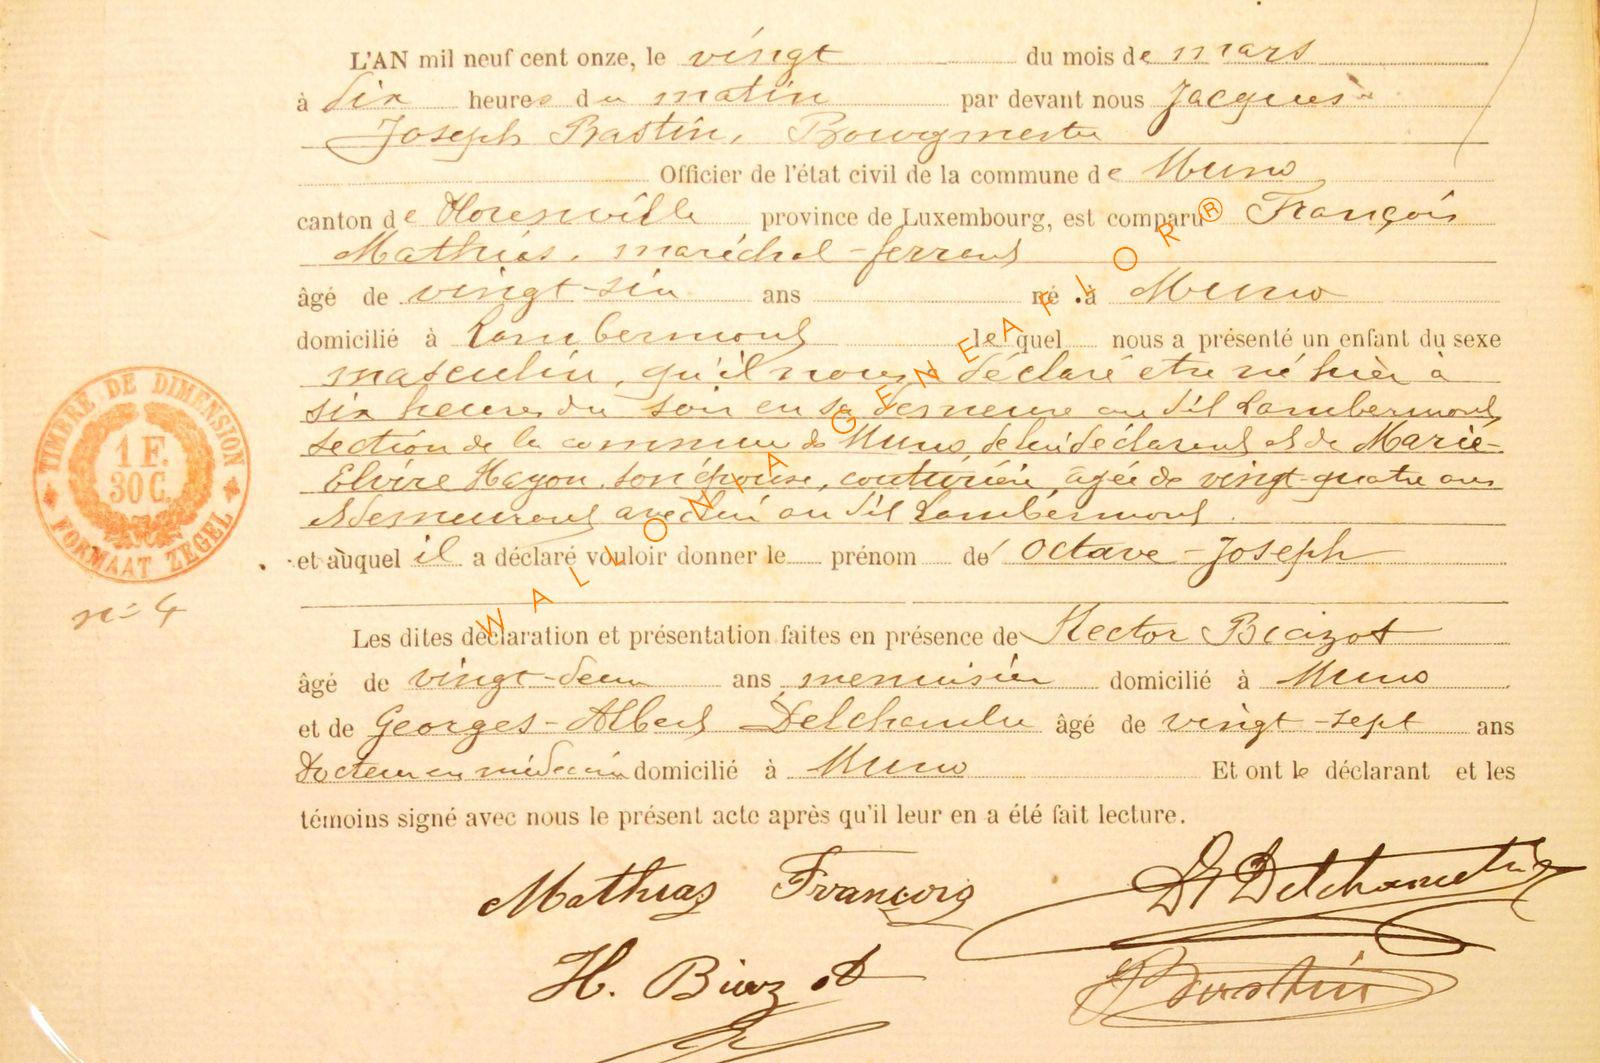 L'AN mil neuf cent onze, le vingt du mois de mars
à dix heures du matin par devant nous Jacques
Joseph Bastin, Bourgmestre
Officier de l'état civil de la commune de Muno
canton de Florenville province de Luxembourg, est comparu François
Mathias, maréchal-ferrant
âgé de vingt-six ans né à Muno
domicilié à Lambermont lequel nous a présenté un enfant du sexe
masculin, qu'il nous déclaré etre né hier à
six heures du soir en sa demeure au dit Lambermont,
section de la commune de Muno, de lui déclarant et de Marie-
Elvire Hayon, son épouse, couturière, âgée de vingt-quatre ans
et demeurant avec lui au dit Lambermont.
et auquel il a déclaré vouloir donner le prénom de Octave-Joseph
Les dites déclaration et présentation faites en présence de Hector Biazot
âgé de vingt-deux ans, menuisier domicilié à Muno
et de Georges-Albert Delchambre âgé de vingt-sept ans
Docteur en médecine domicilié à Muno Et ont le déclarant et les
témoins signé avec nous le présent acte après qu'il leur en a été fait lecture.
TIMBRE DE DIMENSION
1 F.
30 C.
FORMAAT ZEGEL
n° 4
WALLONIA GENEAFLOR®
Mathias François
Dr Delchambre
H. Biazot
J Bastin